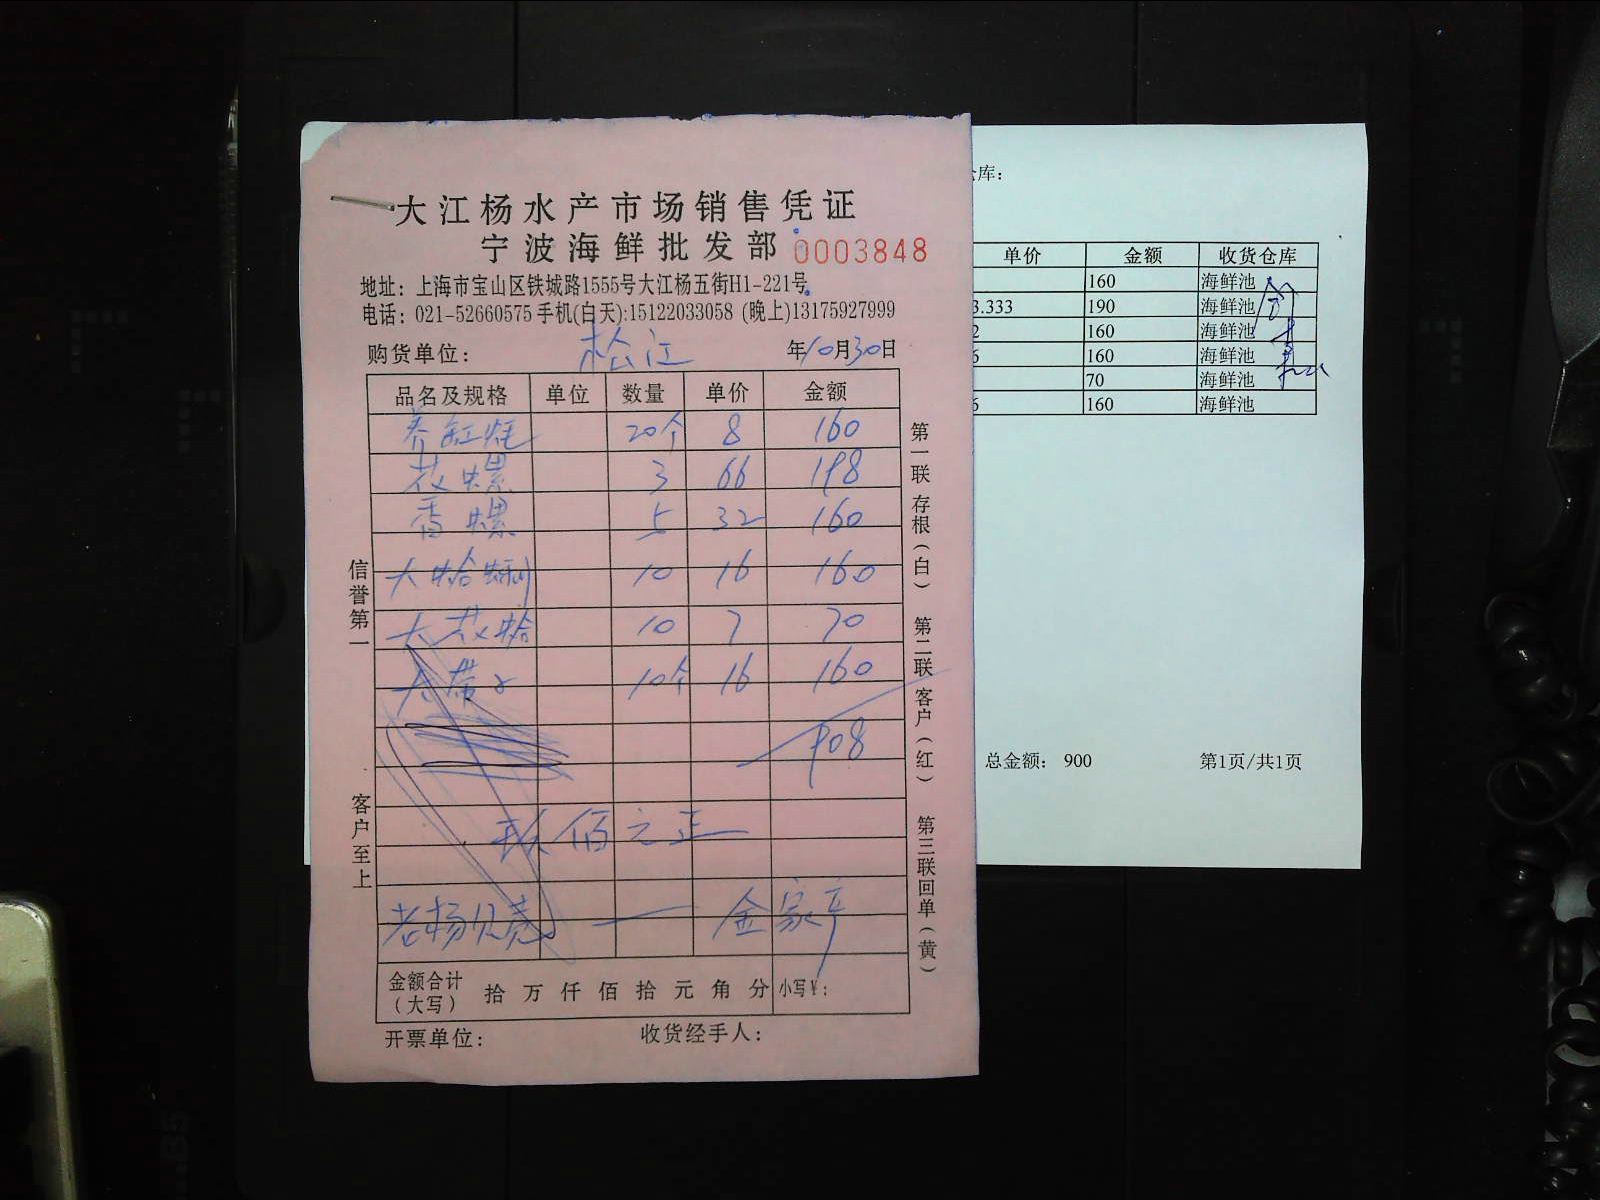 大江杨水产市场销售凭证
宁波海鲜批发部 0003848
地址：上海市宝山区铁城路1555号大江杨五街H1-221号
电话：021-52660575 手机(白天):15122033058 (晚上)13175927999
购货单位： 松江 年10月30日
品名及规格 单位 数量 单价 金额
20个 8 160
花螺 3 66 198
香螺 5 32 160
大蛤蜊 10 16 160
大花蛤 10 7 70
大带子 10个 16 160
908
玖佰元正
老杨贝壳 — 金家亭
金额合计（大写） 拾 万 仟 佰 拾 元 角 分 小写¥：
开票单位： 收货经手人：
信誉第一
客户至上
第一联 存根（白）
第二联 客户（红）
第三联 回单（黄）
库：
单价 金额 收货仓库
160 海鲜池
3.333 190 海鲜池
2 160 海鲜池
6 160 海鲜池
70 海鲜池
6 160 海鲜池
总金额： 900 第1页/共1页